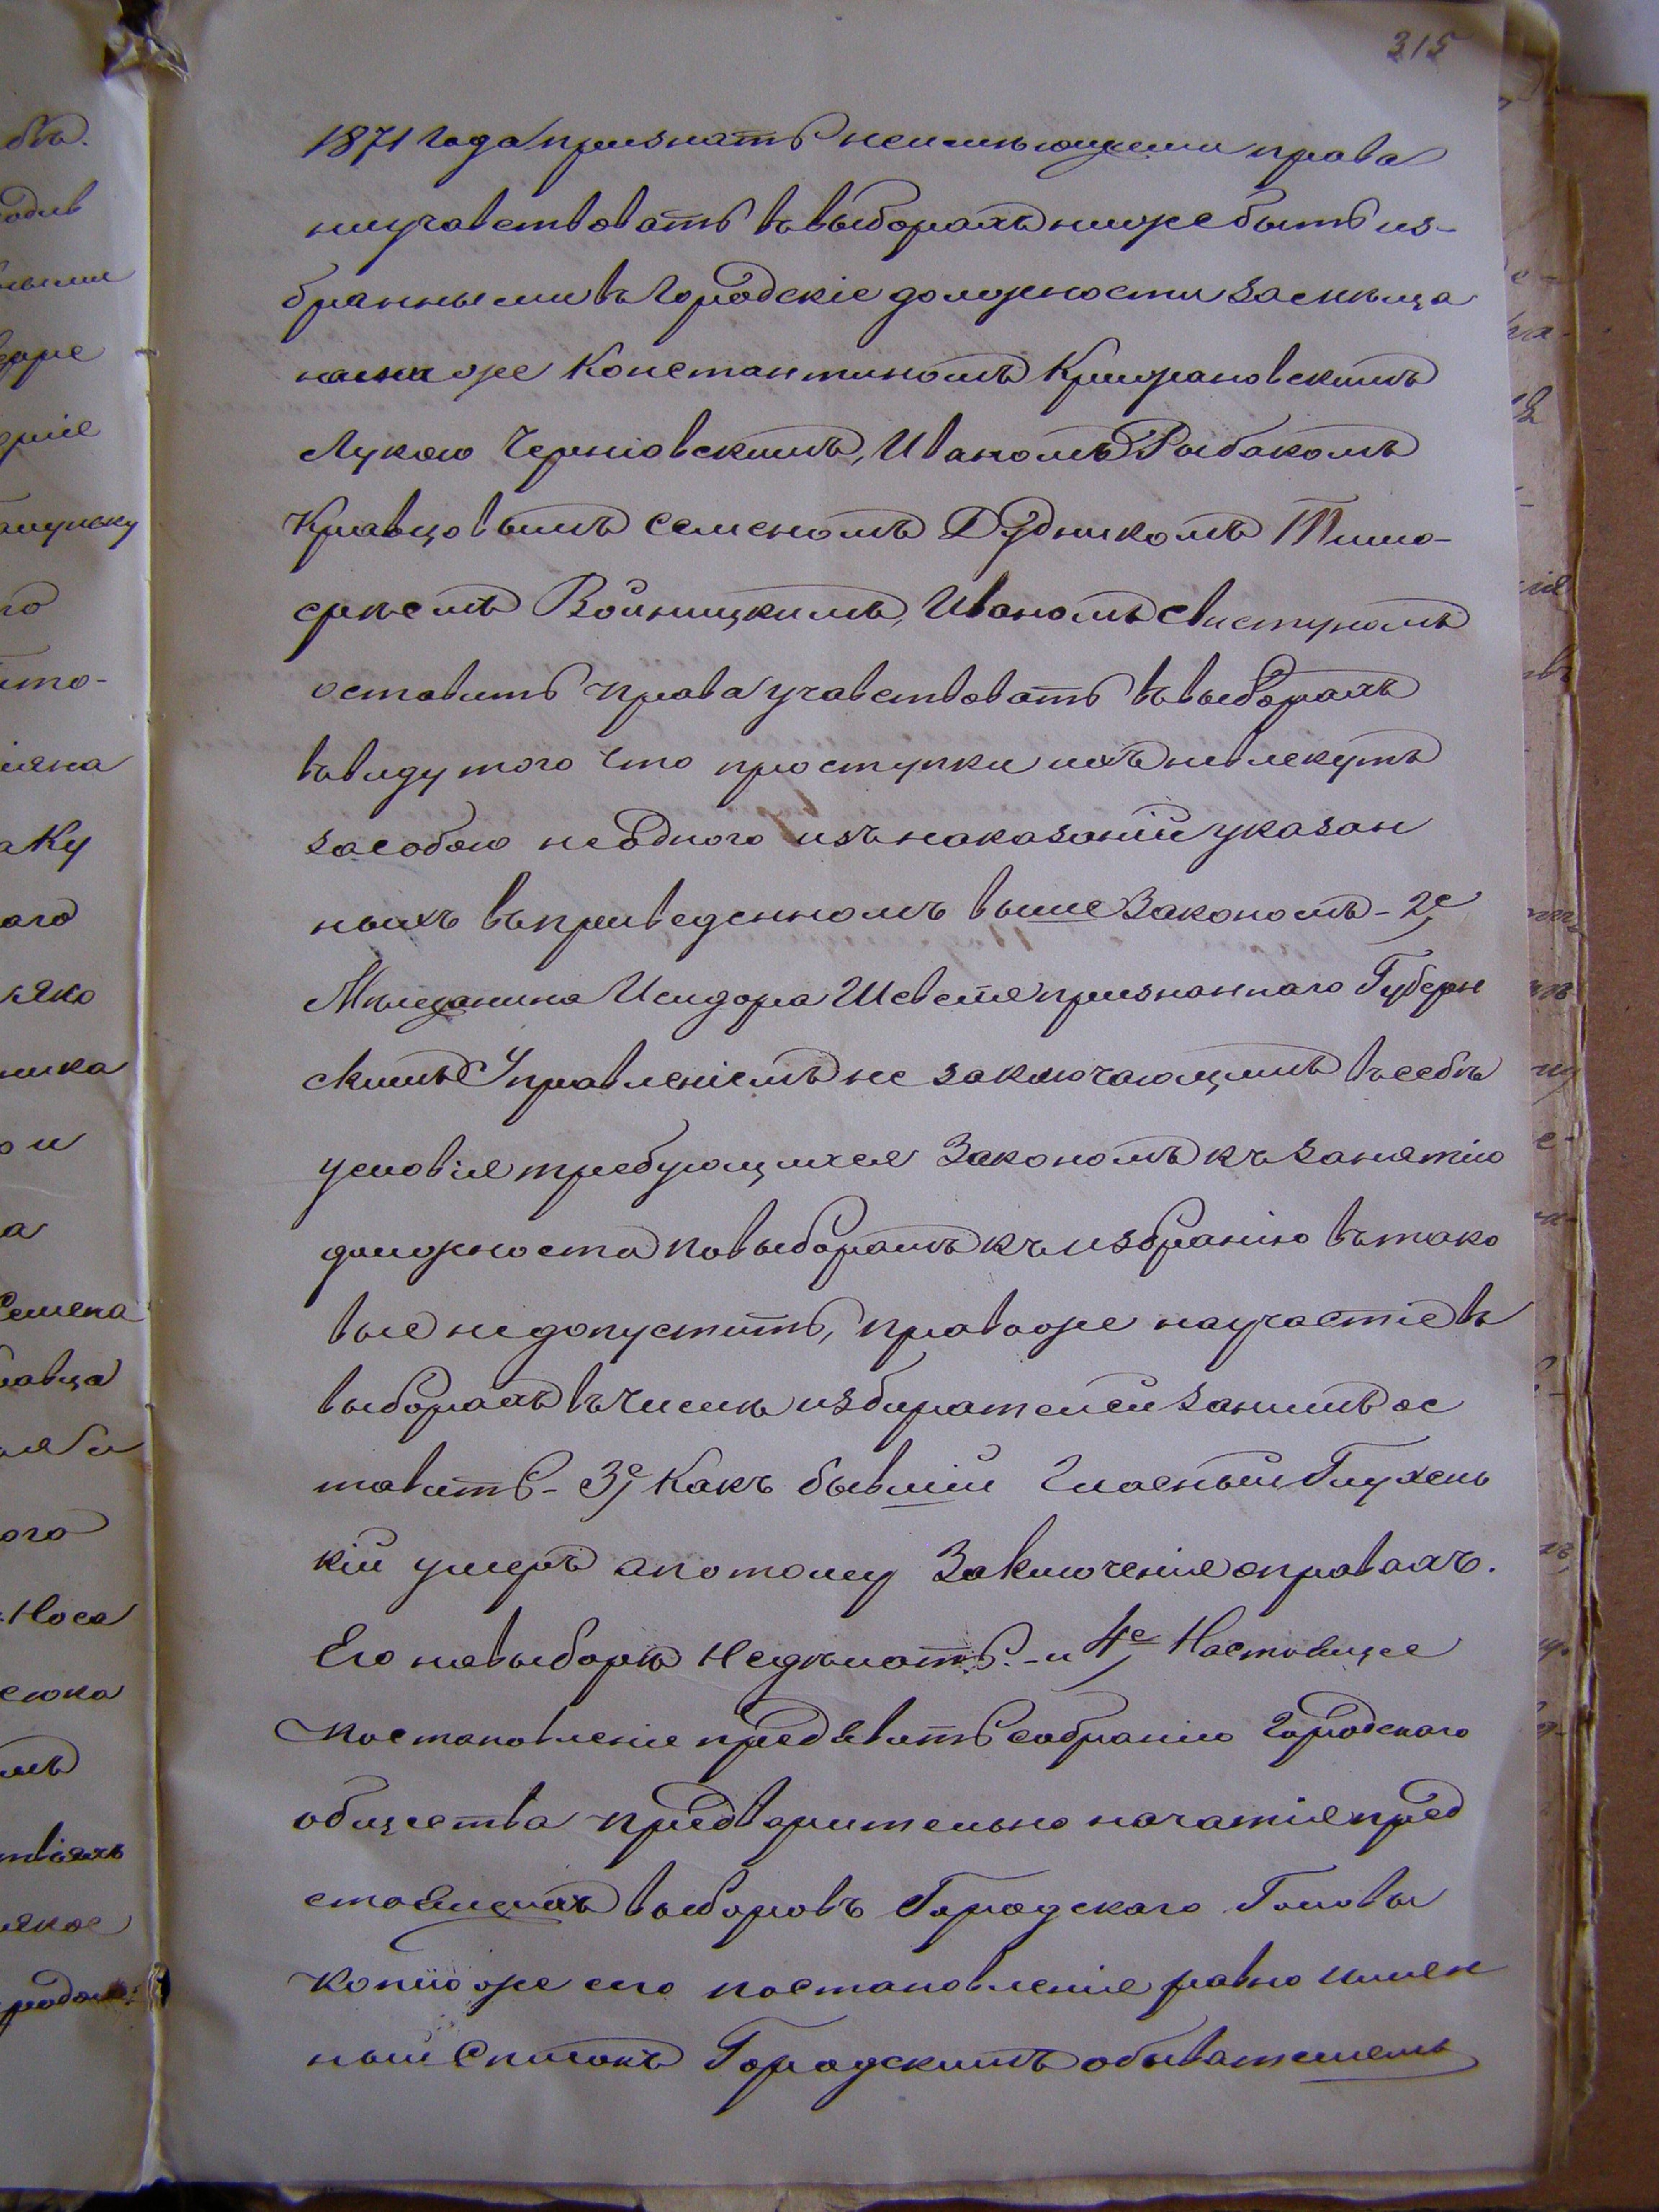 315
1871 года признать неимѣющими права
ниучавствовать въ выборахъ ниже быть из-
бранными въ Городскіе должности за
же Константиномъ Крижановскимъ
Лукою Черніовскимъ, Иваномъ Рыбакомъ
Кравцовымъ Семеномъ Дудникомъ Тимо-
Войницкимъ, Иваномъ Свистуномъ
оставить права учавствовать въ выборахъ
въ виду того что проступки ихъ невлекутъ
засобою неодного изъ наказаній указан
ныхъ въ приведенномъ выше Закономъ - 2е,
Мѣщанина Исидора Шевстя признаннаго Губерн
скимъ Управленіемъ не заключающимъ въ себѣ
условія требующихся Закономъ къ занятію
должноста по выборамъ къ избранію въ тако
вые недопустить, право же научастіе въ
выборахъ въ числѣ избирателей занимъ ос
тавить - 3е, Какъ бывшій Гласный Глухень
кій умеръ апотому Заключенія оправахъ.
Его навыборы Недѣлать. - и 4е, Настоящее
Постановленіе предявить собранію Городского
общества предварительно начатія пред
стоящихъ выборовъ Городского Головы
копію же сего постановленія равно имен
ный Списокъ Городскимъ обывателемъ